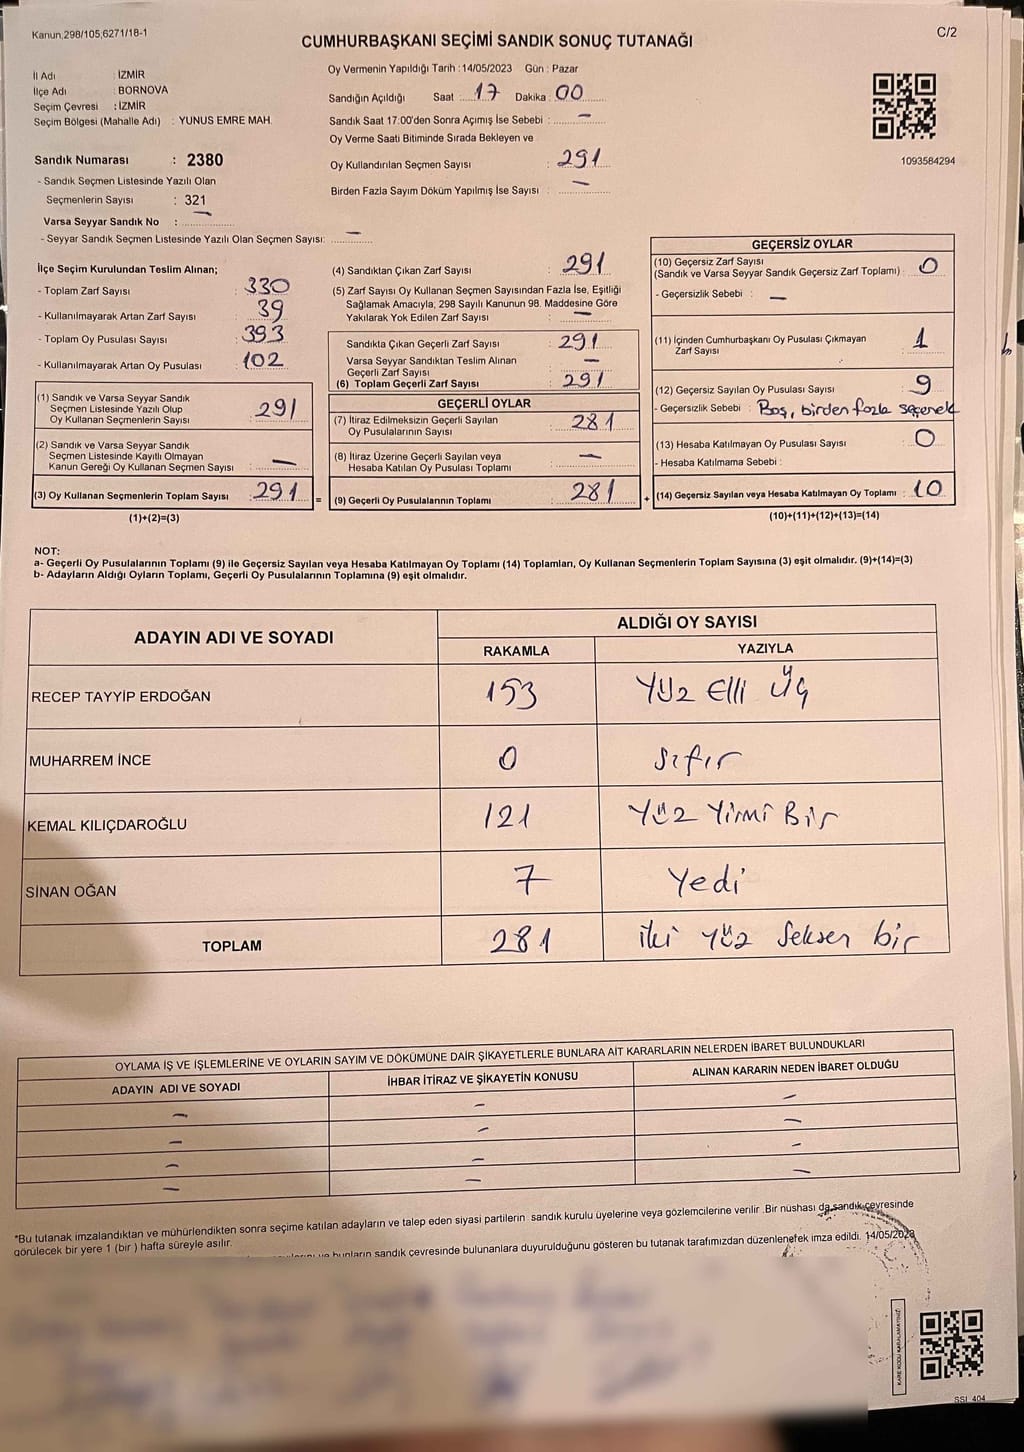 Kanun,298/105,6271/18-1
C/2
CUMHURBAŞKANI SEÇİMİ SANDIK SONUÇ TUTANAĞI
İl Adı : İZMİR
İlçe Adı : BORNOVA
Seçim Çevresi : İZMİR
Seçim Bölgesi (Mahalle Adı) : YUNUS EMRE MAH.
Sandık Numarası : 2380
- Sandık Seçmen Listesinde Yazılı Olan
Seçmenlerin Sayısı : 321
Varsa Seyyar Sandık No : —
- Seyyar Sandık Seçmen Listesinde Yazılı Olan Seçmen Sayısı: —
Oy Vermenin Yapıldığı Tarih : 14/05/2023 Gün : Pazar
Sandığın Açıldığı Saat 17 Dakika 00
Sandık Saat 17:00'den Sonra Açımış İse Sebebi : —
Oy Verme Saati Bitiminde Sırada Bekleyen ve
Oy Kullandırılan Seçmen Sayısı : 291
Birden Fazla Sayım Döküm Yapılmış İse Sayısı : —
1093584294
İlçe Seçim Kurulundan Teslim Alınan;
- Toplam Zarf Sayısı : 330
- Kullanılmayarak Artan Zarf Sayısı : 39
- Toplam Oy Pusulası Sayısı : 393
- Kullanılmayarak Artan Oy Pusulası : 102
(1) Sandık ve Varsa Seyyar Sandık
Seçmen Listesinde Yazılı Olup
Oy Kullanan Seçmenlerin Sayısı : 291
(2) Sandık ve Varsa Seyyar Sandık
Seçmen Listesinde Kayıtlı Olmayan
Kanun Gereği Oy Kullanan Seçmen Sayısı : —
(3) Oy Kullanan Seçmenlerin Toplam Sayısı : 291
(1)+(2)=(3)
=
(4) Sandıktan Çıkan Zarf Sayısı : 291
(5) Zarf Sayısı Oy Kullanan Seçmen Sayısından Fazla İse, Eşitliği
Sağlamak Amacıyla, 298 Sayılı Kanunun 98. Maddesine Göre
Yakılarak Yok Edilen Zarf Sayısı : —
Sandıkta Çıkan Geçerli Zarf Sayısı : 291
Varsa Seyyar Sandıktan Teslim Alınan
Geçerli Zarf Sayısı : —
(6) Toplam Geçerli Zarf Sayısı : 291
GEÇERLİ OYLAR
(7) İtiraz Edilmeksizin Geçerli Sayılan
Oy Pusulalarının Sayısı : 281
(8) İtiraz Üzerine Geçerli Sayılan veya
Hesaba Katılan Oy Pusulası Toplamı : —
(9) Geçerli Oy Pusulalarının Toplamı : 281
+
GEÇERSİZ OYLAR
(10) Geçersiz Zarf Sayısı
(Sandık ve Varsa Seyyar Sandık Geçersiz Zarf Toplamı) : 0
- Geçersizlik Sebebi : —
(11) İçinden Cumhurbaşkanı Oy Pusulası Çıkmayan
Zarf Sayısı : 1
(12) Geçersiz Sayılan Oy Pusulası Sayısı : 9
- Geçersizlik Sebebi : Boş, birden fazla seçenek
(13) Hesaba Katılmayan Oy Pusulası Sayısı : 0
- Hesaba Katılmama Sebebi :
(14) Geçersiz Sayılan veya Hesaba Katılmayan Oy Toplamı : 10
(10)+(11)+(12)+(13)=(14)
NOT:
a- Geçerli Oy Pusulalarının Toplamı (9) ile Geçersiz Sayılan veya Hesaba Katılmayan Oy Toplamı (14) Toplamları, Oy Kullanan Seçmenlerin Toplam Sayısına (3) eşit olmalıdır. (9)+(14)=(3)
b- Adayların Aldığı Oyların Toplamı, Geçerli Oy Pusulalarının Toplamına (9) eşit olmalıdır.
ADAYIN ADI VE SOYADI
ALDIĞI OY SAYISI
RAKAMLA YAZIYLA
RECEP TAYYİP ERDOĞAN 153 Yüz Elli Üç
MUHARREM İNCE 0 Sıfır
KEMAL KILIÇDAROĞLU 121 Yüz Yirmi Bir
SİNAN OĞAN 7 Yedi
TOPLAM 281 iki yüz Seksen bir
OYLAMA İŞ VE İŞLEMLERİNE VE OYLARIN SAYIM VE DÖKÜMÜNE DAİR ŞİKAYETLERLE BUNLARA AİT KARARLARIN NELERDEN İBARET BULUNDUKLARI
ADAYIN ADI VE SOYADI İHBAR İTİRAZ VE ŞİKAYETİN KONUSU ALINAN KARARIN NEDEN İBARET OLDUĞU
— — —
— — —
— — —
— — —
*Bu tutanak imzalandıktan ve mühürlendikten sonra seçime katılan adayların ve talep eden siyasi partilerin sandık kurulu üyelerine veya gözlemcilerine verilir .Bir nüshası da sandık çevresinde
görülecek bir yere 1 (bir ) hafta süreyle asılır.
bunların sandık çevresinde bulunanlara duyurulduğunu gösteren bu tutanak tarafımızdan düzenlenerek imza edildi. 14/05/2023
KARE KODU KARALAMAYINIZ
SSI_404